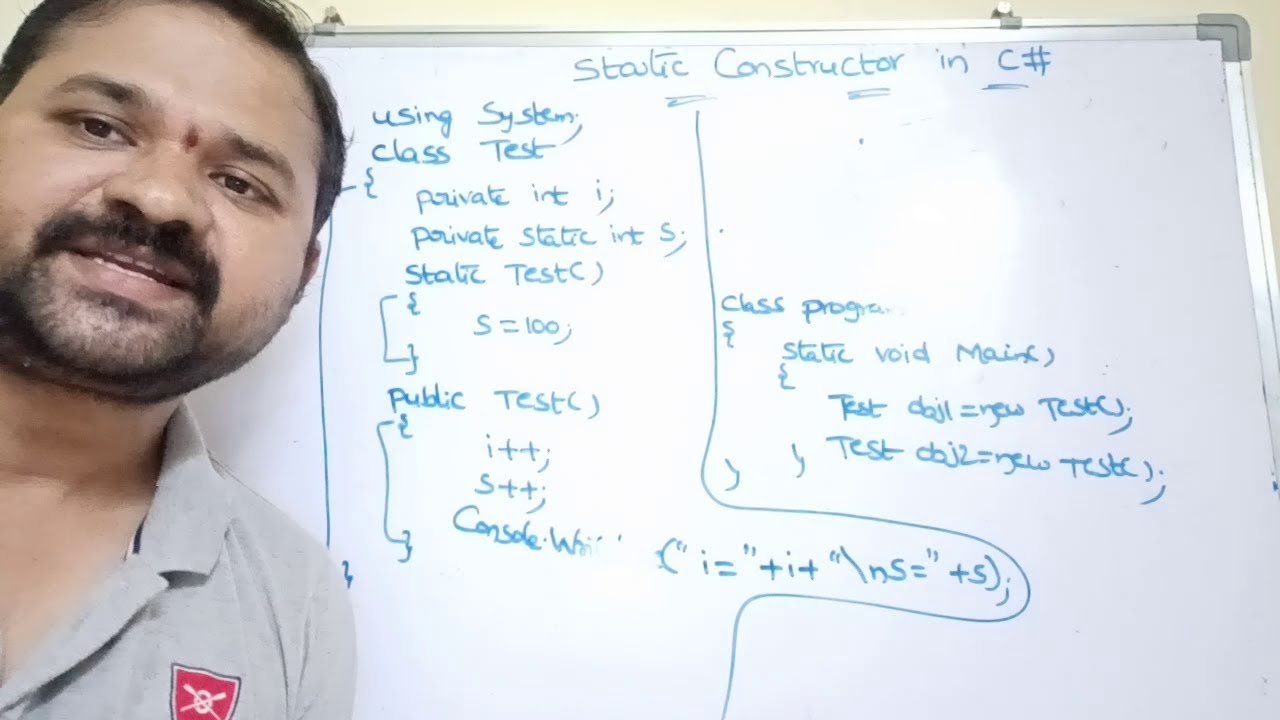 Static Constructor in C#
using System;
class Test
{
private int i;
private static int s;
static Test()
{
s=100;
}
public Test()
{
i++;
s++;
}
("i="+i+"\ns="+s);
}
class
{
static void Main()
{
Test obj1=new Test();
Test obj2=new Test();
}
}